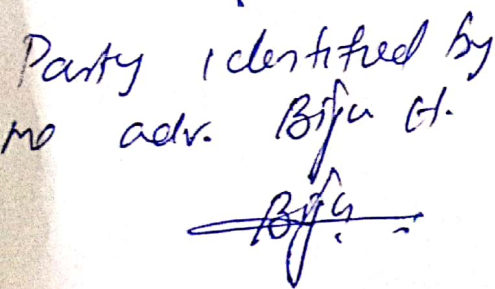 Party identified by
me adv. Biju H.
Biju